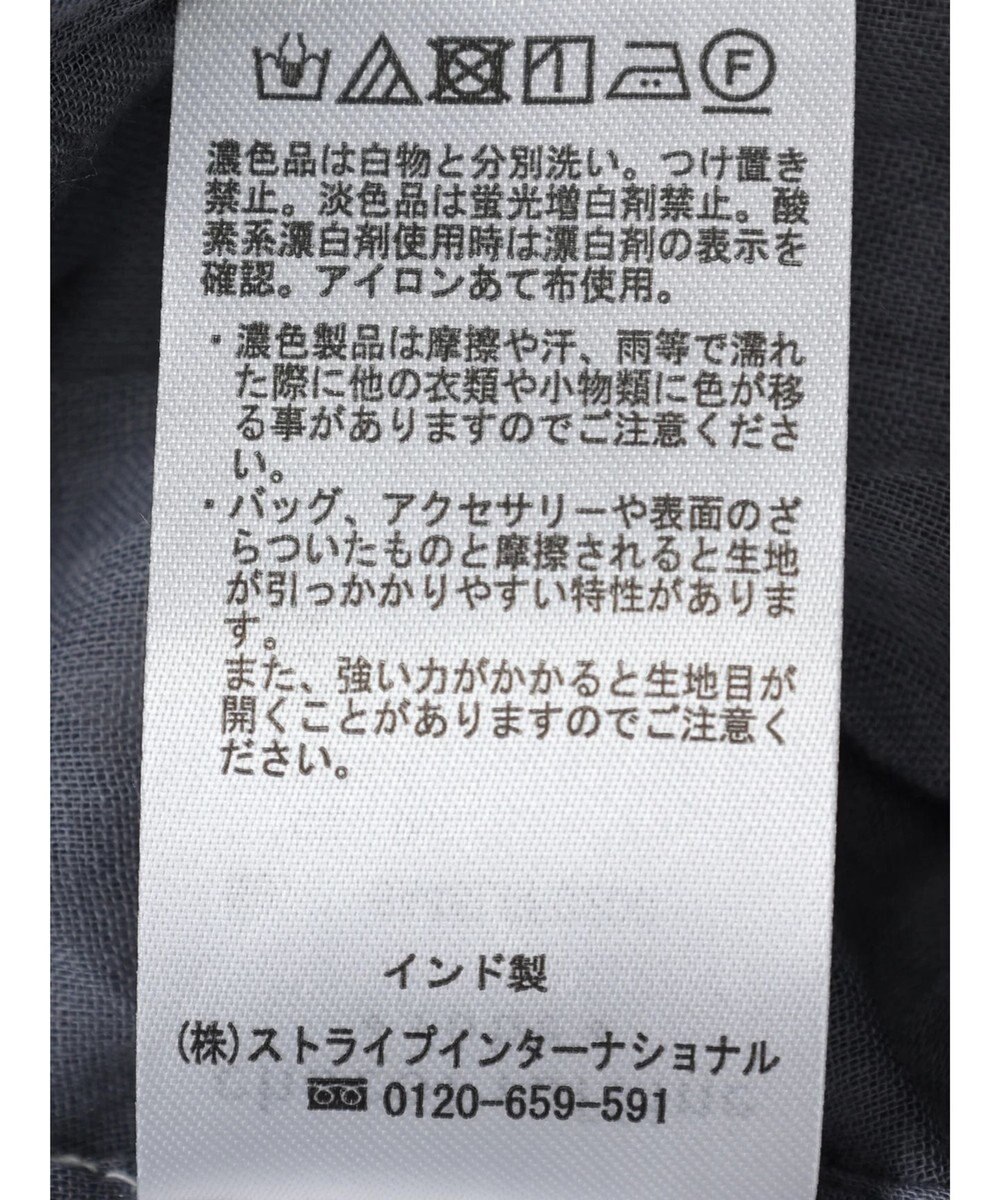 濃色品は白物と分別洗い。つけ置き
禁止。淡色品は蛍光増白剤禁止。酸
素系漂白剤使用時は漂白剤の表示を
確認。アイロンあて布使用。
・濃色製品は摩擦や汗、雨等で濡れ
た際に他の衣類や小物類に色が移
る事がありますのでご注意くださ
い。
・バッグ、アクセサリーや表面のざ
らついたものと摩擦されると生地
が引っかかりやすい特性がありま
す。
また、強い力がかかると生地目が
開くことがありますのでご注意く
ださい。
インド製
(株)ストライプインターナショナル
0120-659-591